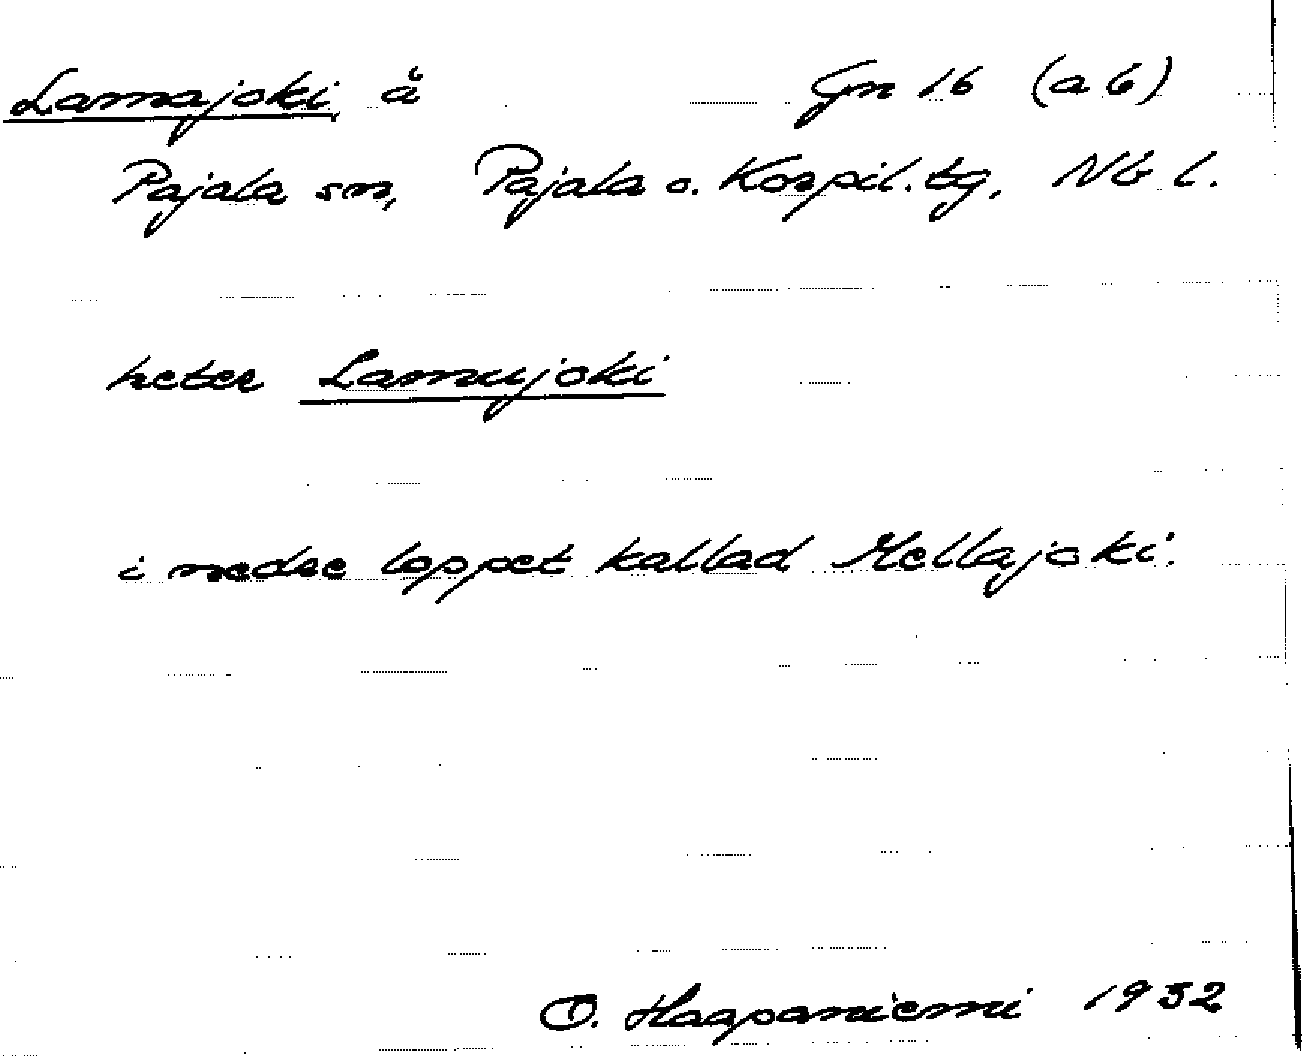 Lamajoki å Gn 16 (a b)
Pajala sn, Pajala o. Korpil. tg, Nb l.
heter Lamujoki
i nedre loppet kallad Mellajoki.
O. Haapaniemi 1932